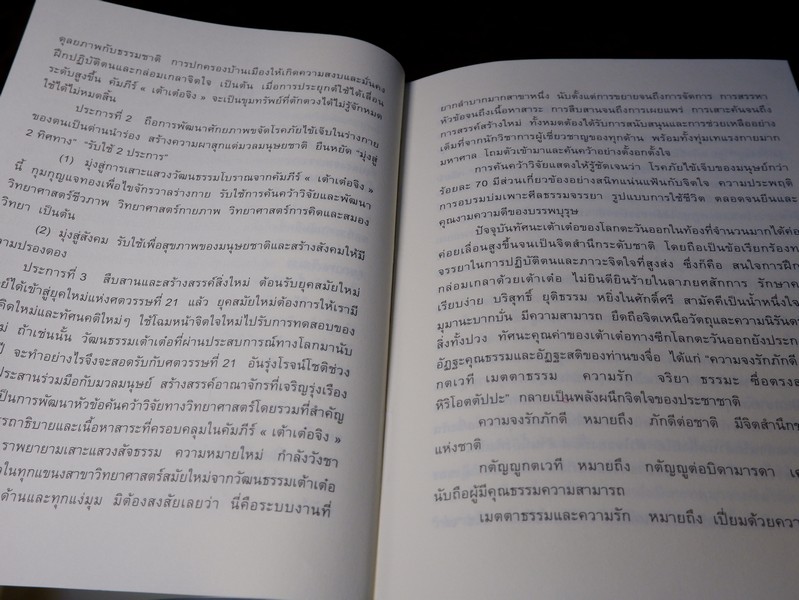 ดุลยภาพกับธรรมชาติ การปกครองบ้านเมืองให้เกิดความสงบและมั่นคง
ฝึกปฏิบัติตนและกล่อมเกลาจิตใจ เป็นต้น เมื่อการประยุกต์ใช้ได้เลื่อน
ระดับสูงขึ้น คัมภีร์ « เต้าเต๋อจิง » จะเป็นขุมทรัพย์ที่ตักตวงได้ไม่รู้จักหมด
ใช้ได้ไม่หมดสิ้น
ประการที่ 2 ถือการพัฒนาศักยภาพขจัดโรคภัยไข้เจ็บในร่างกาย
ของตนเป็นด่านนำร่อง สร้างความผาสุกแด่มวลมนุษยชาติ ยืนหยัด "มุ่งสู่
2 ทิศทาง" "รับใช้ 2 ประการ"
(1) มุ่งสู่การเสาะแสวงวัฒนธรรมโบราณจากคัมภีร์ « เต้าเต๋อจิง »
นี้ กุมกุญแจทองเพื่อไขจักรวาลร่างกาย รับใช้การค้นคว้าวิจัยและพัฒนา
วิทยาศาสตร์ชีวภาพ วิทยาศาสตร์กายภาพ วิทยาศาสตร์การคิดและสมอง
วิทยา เป็นต้น
(2) มุ่งสู่สังคม รับใช้เพื่อสุขภาพของมนุษยชาติและสร้างสังคมให้มี
ความปรองดอง
ประการที่ 3 สืบสานและสร้างสรรค์สิ่งใหม่ ต้อนรับยุคสมัยใหม่
ได้เข้าสู่ยุคใหม่แห่งศตวรรษที่ 21 แล้ว ยุคสมัยใหม่ต้องการให้เรามี
คิดใหม่และทัศนคติใหม่ๆ ใช้โฉมหน้าจิตใจใหม่ไปรับการทดสอบของ
ถ้าเช่นนั้น วัฒนธรรมเต้าเต๋อที่ผ่านประสบการณ์ทางโลกมานับ
ปี จะทำอย่างไรจึงจะสอดรับกับศตวรรษที่ 21 อันรุ่งโรจน์โชติช่วง
ประสานร่วมมือกับมวลมนุษย์ สร้างสรรค์อาณาจักรที่เจริญรุ่งเรือง
เป็นการพัฒนาหัวข้อค้นคว้าวิจัยทางวิทยาศาสตร์โดยรวมที่สำคัญ
รถาธิบายและเนื้อหาสาระที่ครอบคลุมในคัมภีร์ « เต้าเต๋อจิง »
ราพยายามเสาะแสวงสัจธรรม ความหมายใหม่ กำลังวังชา
ในทุกแขนงสาขาวิทยาศาสตร์สมัยใหม่จากวัฒนธรรมเต้าเต๋อ
ด้านและทุกแง่มุม มิต้องสงสัยเลยว่า นี่คือระบบงานที่
ยากลำบากมากสาขาหนึ่ง นับตั้งแต่การขยายจนถึงการจัดการ การสรรหา
หัวข้อจนถึงเนื้อหาสาระ การสืบสานจนถึงการเผยแพร่ การเสาะค้นจนถึง
การสรรค์สร้างใหม่ ทั้งหมดต้องได้รับการสนับสนุนและการช่วยเหลืออย่าง
เต็มที่จากนักวิชาการผู้เชี่ยวชาญของทุกด้าน พร้อมทั้งทุ่มเทแรงกายมาก
มหาศาล โถมตัวเข้ามาและค้นคว้าอย่างตั้งอกตั้งใจ
การค้นคว้าวิจัยแสดงให้รู้ชัดเจนว่า โรคภัยไข้เจ็บของมนุษย์กว่า
ร้อยละ 70 มีส่วนเกี่ยวข้องอย่างสนิทแน่นแฟ้นกับจิตใจ ความประพฤติ
การอบรมบ่มเพาะศีลธรรมจรรยา รูปแบบการใช้ชีวิต ตลอดจนยีนและ
คุณงามความดีของบรรพบุรุษ
ปัจจุบันทัศนะเต้าเต๋อของโลกตะวันออกในท้องที่จำนวนมากได้ค่อย
ค่อยเลื่อนสูงขึ้นจนเป็นจิตสำนึกระดับชาติ โดยถือเป็นข้อเรียกร้อง
จรรยาในการปฏิบัติตนและภาวะจิตใจที่สูงส่ง ซึ่งก็คือ สนใจการฝึก
กล่อมเกลาด้วยเต้าเต๋อ ไม่ยินดียินร้ายในลาภยศสักการ รักษา
เรียบง่าย บริสุทธิ์ ยุติธรรม หยิ่งในศักดิ์ศรี สามัคคีเป็นน้ำหนึ่งใจ
มุมานะบากบั่น มีความสามารถ ยึดถือจิตเหนือวัตถุและความนิรันดร
สิ่งทั้งปวง ทัศนะคุณค่าของเต้าเต๋อทางซีกโลกตะวันออกยังประกอบ
อัฏฐะคุณธรรมและอัฏฐะสติของท่านขงจื่อ ได้แก่ "ความจงรักภักดี
กตเวที เมตตาธรรม ความรัก จริยา ธรรมะ ซื่อตรง
หิริโอตตัปปะ" กลายเป็นพลังผนึกจิตใจของประชาชาติ
ความจงรักภักดี หมายถึง ภักดีต่อชาติ มีจิตสำนึก
แห่งชาติ
กตัญญูกตเวที หมายถึง กตัญญูต่อบิดามารดา
นับถือผู้มีคุณธรรมความสามารถ
เมตตาธรรมและความรัก หมายถึง เปี่ยมด้วย